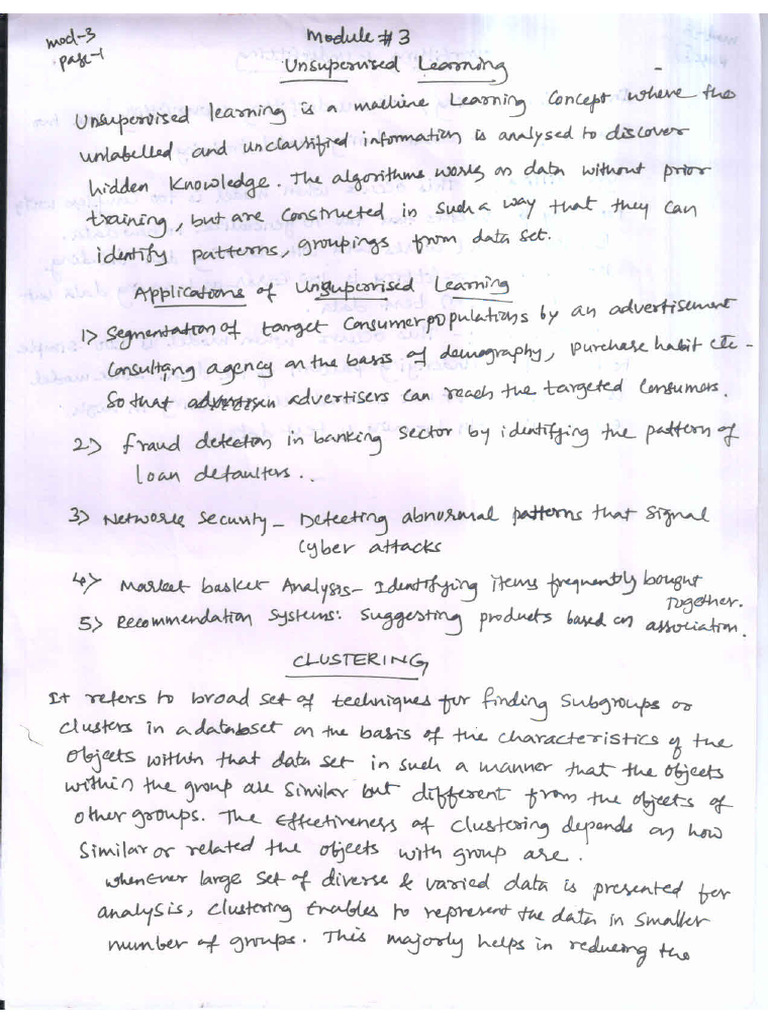 mod-3
page-1
Module # 3
Unsupervised Learning
Unsupervised learning is a machine Learning Concept where the
unlabelled and unclassified information is analysed to discover
hidden knowledge. The algorithms works on data without prior
training, but are constructed in such a way that they can
identify patterns, groupings from data set.
Applications of Unsupervised Learning
1> Segmentation of target Consumer populations by an advertisement
Consulting agency on the basis of demography, purchase habit etc -
So that advertisers can reach the targeted Consumers.
2> fraud detection in banking sector by identifing the pattern of
loan defaulters..
3> Network Security - Detecting abnormal patterns that signal
Cyber attacks
4> Market basket Analysis - Identifying items frequently bought
together.
5> Recommendation Systems: Suggesting products based on association.
CLUSTERING
It refers to broad set of techniques for finding Subgroups or
clusters in a dataset on the basis of the characteristics of the
Objects within that data set in such a manner that the objects
within the group are similar but different from the objects of
other groups. The effectiveness of clustering depends on how
Similar or related the objects with group are.
whenever large set of diverse & varied data is presented for
analysis, clustering enables to represent the data in smaller
number of groups. This majorly helps in reducing the